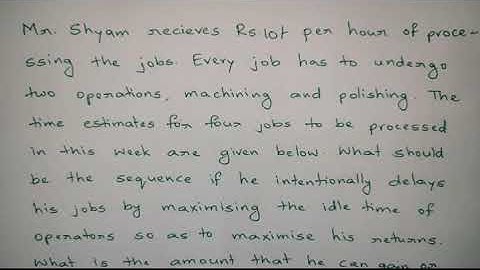 Mr. Shyam recieves Rs 10/- per hour of proce-
ssing the jobs. Every job has to undergo
two operations, machining and polishing. The
time estimates for four jobs to be processed
in this week are given below. What should
be the sequence if he intentionally delays
his jobs by maximising the idle time of
operators so as to maximise his returns.
What is the amount that he can gain or